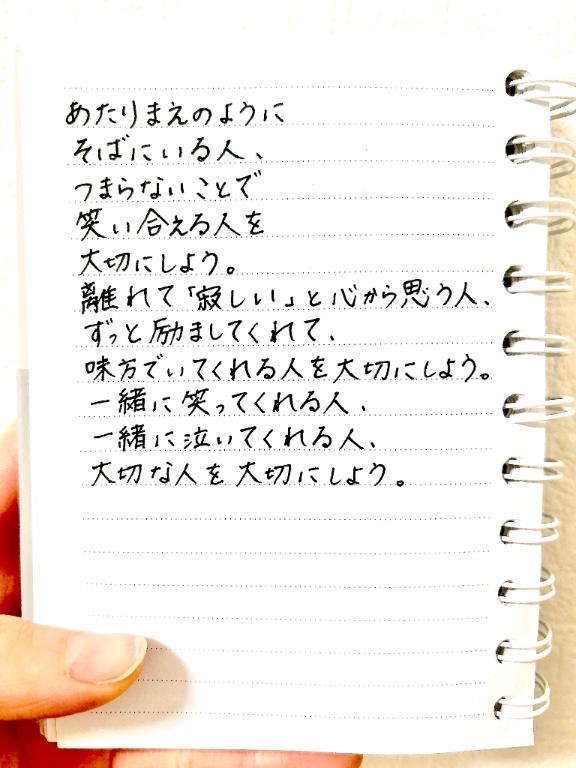 あたりまえのように
そばにいる人、
つまらないことで
笑い合える人を
大切にしよう。
離れて「寂しい」と心から思う人、
ずっと励ましてくれて、
味方でいてくれる人を大切にしよう。
一緒に笑ってくれる人、
一緒に泣いてくれる人、
大切な人を大切にしよう。